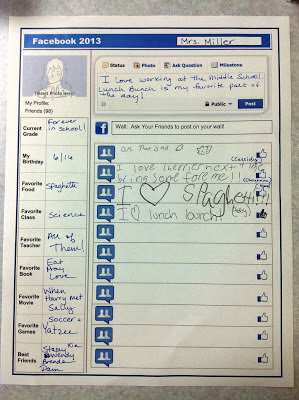 Facebook 2013
Mrs. Miller
(Insert Photo Here)
My Profile:
Friends (98)
Status Photo Ask Question Milestone
I love working at the Middle School.
Lunch Bunch is my favorite part of
the day!
Public Post
Wall: Ask Your Friends to post on your wall!
Current
Grade
Forever
in school!
My
Birthday
6/16
Favorite
Food
Spaghetti
Favorite
Class
Science
Favorite
Teacher
All of
Them!
Favorite
Book
Eat
Pray
Love
Favorite
Movie
When
Harry met
Sally
Favorite
Games
Soccer
Yatzee
Best
Friends
Stacey
Wendy
Brenda
I love
next time
bring some for me!
I ♡ Spaghetti!!!
I ♡ lunch bunch!